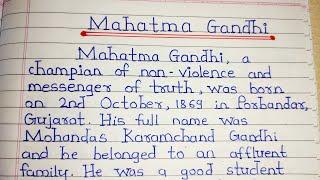 Mahatma Gandhi
Mahatma Gandhi, a
champian of non-violence and
messenger of truth, was born
an 2nd October, 1869 in Porbandar,
Gujarat. His full name was
Mohandas Karamchand Gandhi
and he belonged to an affluent
family. He was a good student